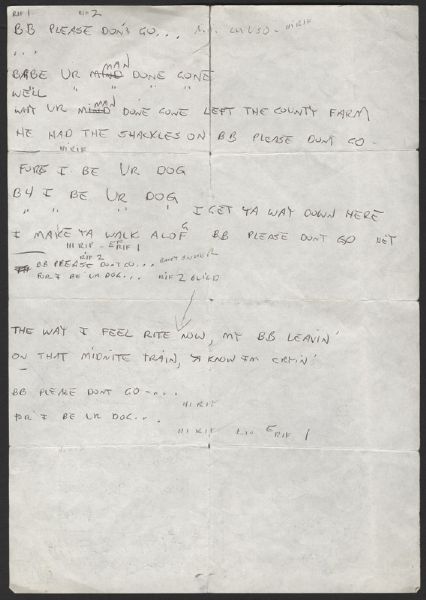 RIF 1 RIF 2
BB PLEASE DON'S GO... HI RIF
...
BABE UR MAN DONE GONE
WE'LL " " " "
WAY UR MAN DONE GONE LEFT THE COUNTY FARM
HE HAD THE SHACKLES ON BB PLEASE DONT GO -
HI RIF
FURE I BE UR DOG
B4 I BE UR DOG
" " " " I GET YA WAY DOWN HERE
I MAKE YA WALK ALOFG BB PLEASE DONT GO HEY
HI RIF - E RIF 1
RIF 2
BB PLEASE DONT GO...
FOR I BE UR DOG... RIF 2 BUILD
THE WAY I FEEL RITE NOW, MY BB LEAVIN'
ON THAT MIDNITE TRAIN, & KNOW I'M CRYIN'
BB PLEASE DONT GO -...
HI RIF
FOR I BE UR DOG...
HI RIF E RIF 1